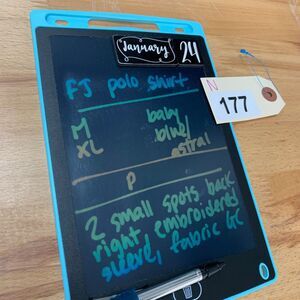 January 24
N
177
FJ polo shirt
M baby
blue/
XL astral
P
2 small spots back
right embroidered
sleeve, fabric GC